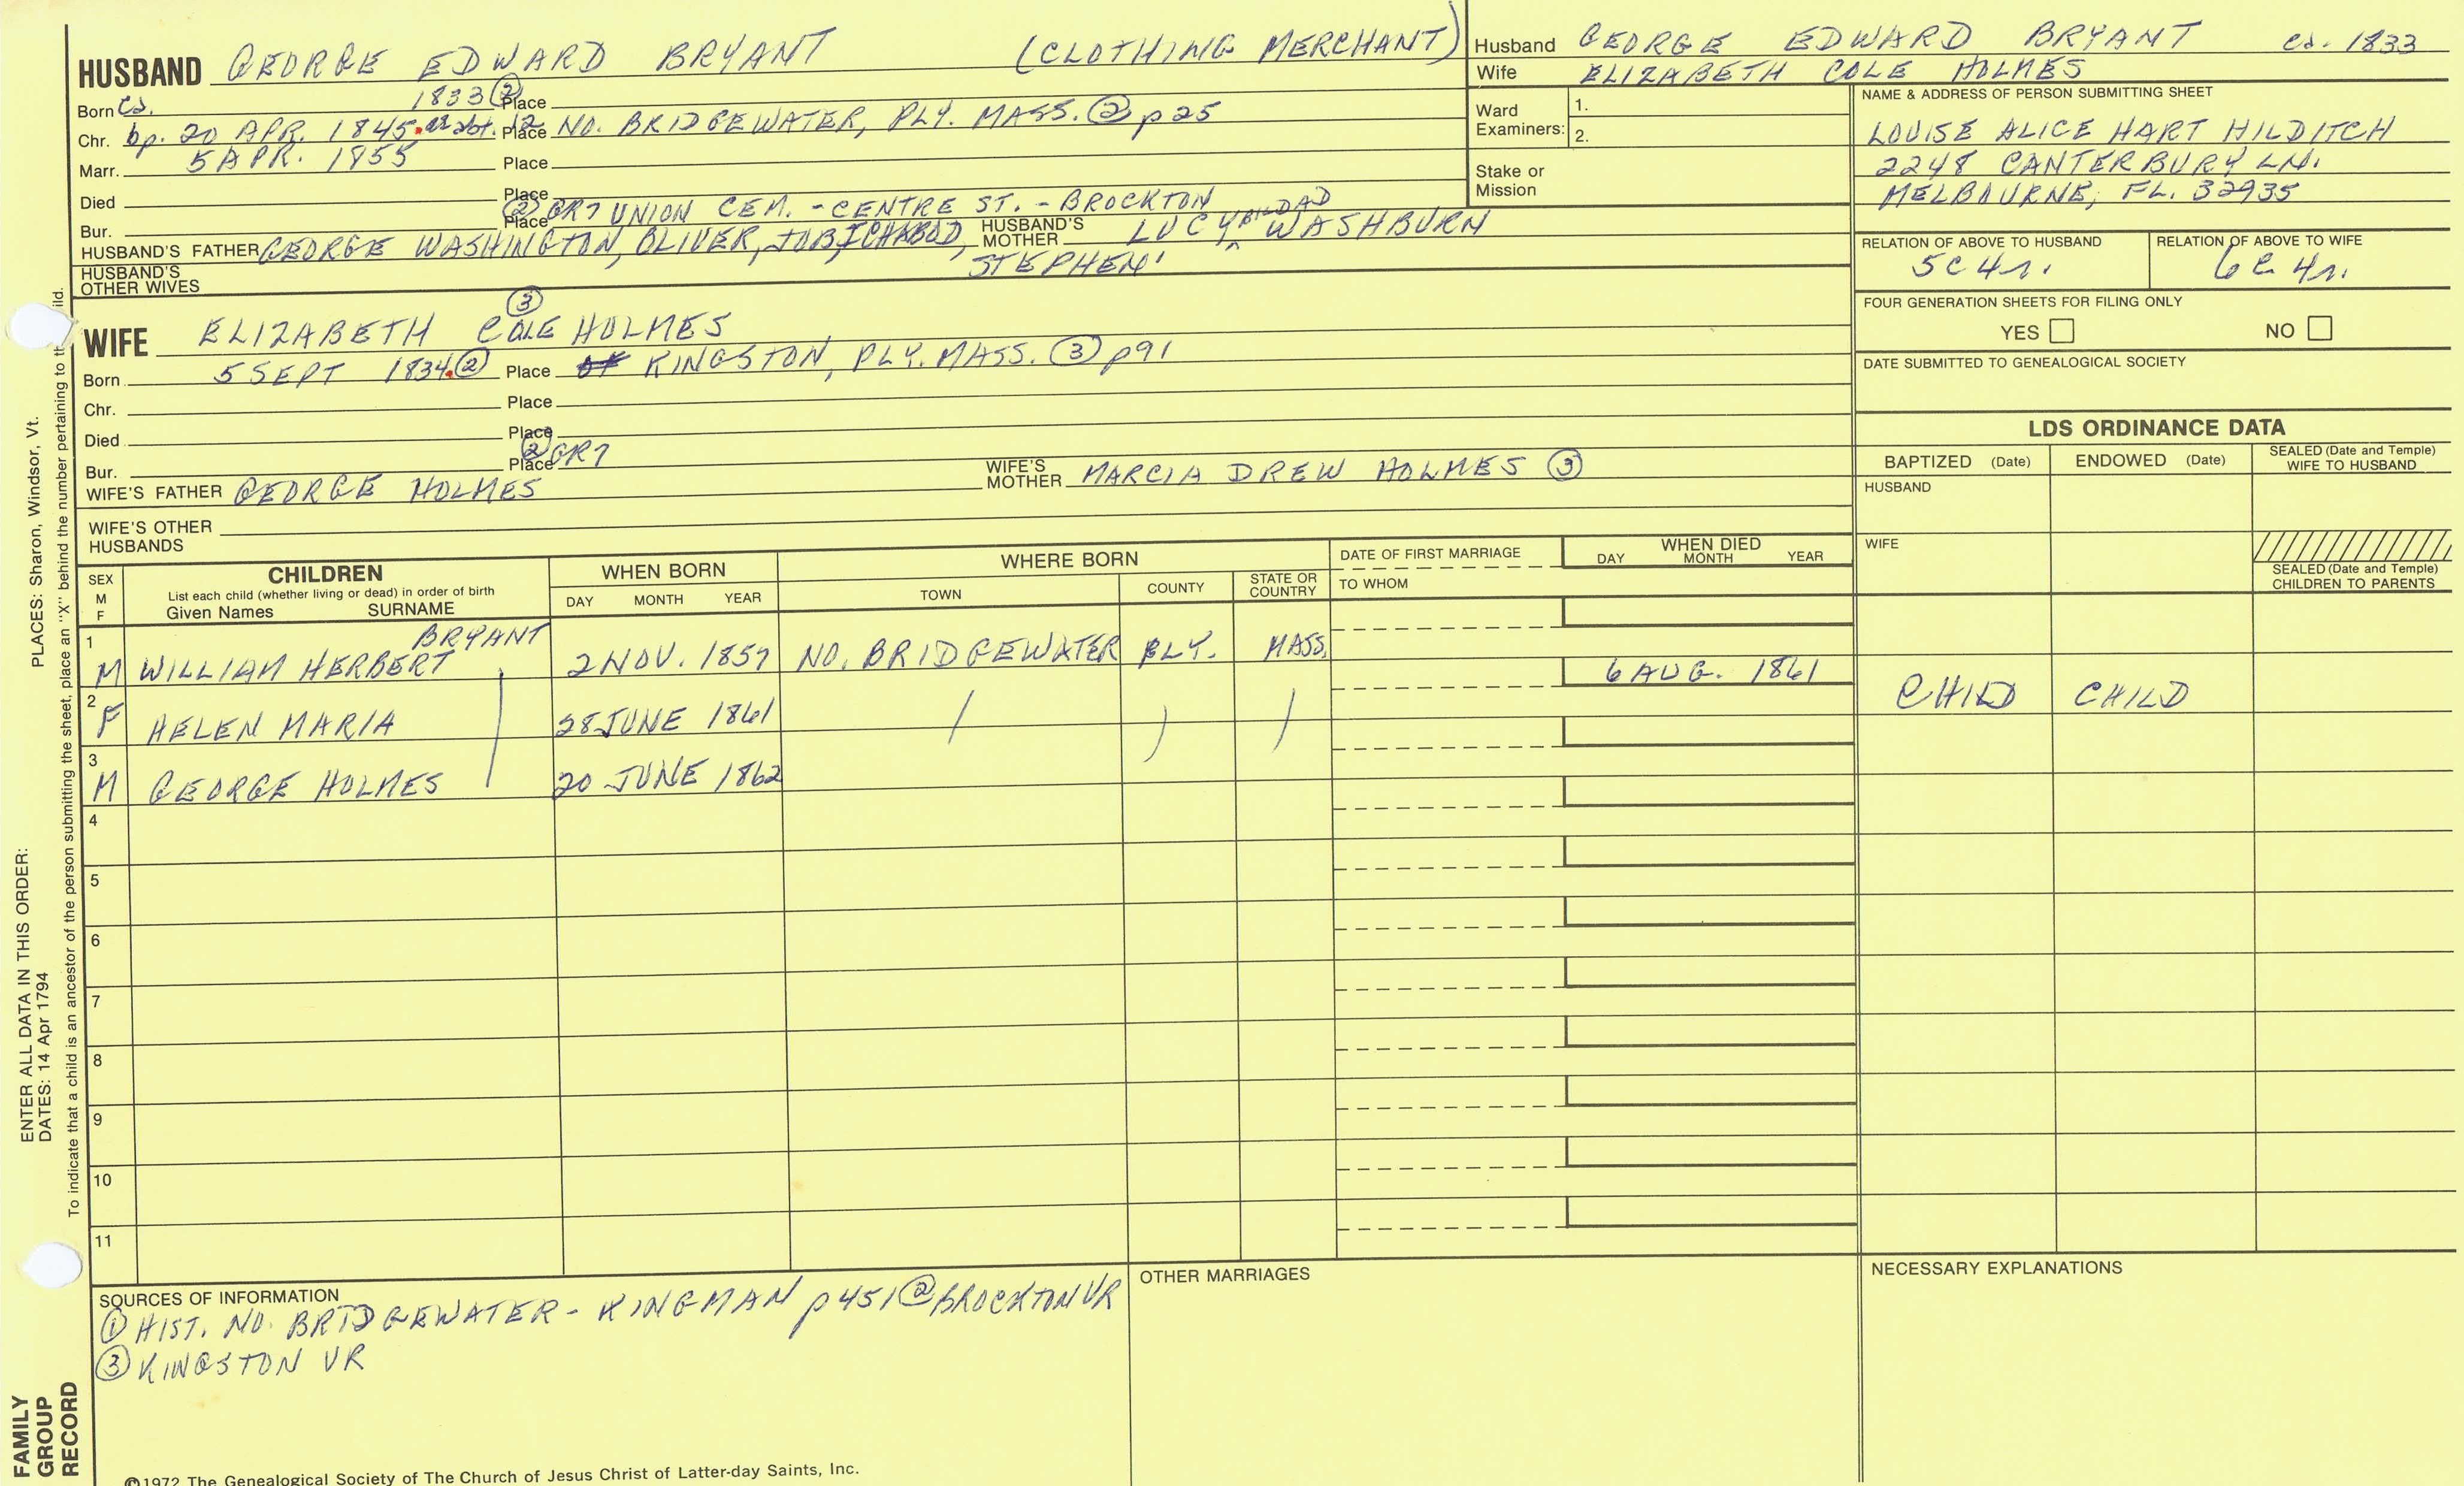 HUSBAND GEORGE EDWARD BRYANT (CLOTHING MERCHANT)
Born Ca. 1833 ② Place
Chr. bp. 20 APR. 1845. ae abt. 12 Place NO. BRIDGEWATER, PLY. MASS. ② p25
Marr. 5 APR. 1855 Place
Died Place
Bur. Place ② GR7 UNION CEM. - CENTRE ST. - BROCKTON
HUSBAND'S FATHER GEORGE WASHINGTON, OLIVER, JOB, ICHABOD, STEPHEN' HUSBAND'S MOTHER LUCY WASHBURN
HUSBAND'S OTHER WIVES
WIFE ELIZABETH COLE HOLMES ③
Born 5 SEPT 1834. ② Place KINGSTON, PLY. MASS. ③ p91
Chr. Place
Died Place
Bur. Place ② GR7
WIFE'S FATHER GEORGE HOLMES WIFE'S MOTHER MARCIA DREW HOLMES ③
WIFE'S OTHER HUSBANDS
Husband GEORGE EDWARD BRYANT ca. 1833
Wife ELIZABETH COLE HOLMES
Ward Examiners: 1.
2.
Stake or Mission
NAME & ADDRESS OF PERSON SUBMITTING SHEET
LOUISE ALICE HART HILDITCH
2248 CANTERBURY LN.
MELBOURNE, FL. 32935
RELATION OF ABOVE TO HUSBAND RELATION OF ABOVE TO WIFE
5C 4r. 6C. 4r.
FOUR GENERATION SHEETS FOR FILING ONLY
YES NO
DATE SUBMITTED TO GENEALOGICAL SOCIETY
LDS ORDINANCE DATA
BAPTIZED (Date) ENDOWED (Date) SEALED (Date and Temple) WIFE TO HUSBAND
HUSBAND
WIFE
SEALED (Date and Temple) CHILDREN TO PARENTS
SEX M F CHILDREN List each child (whether living or dead) in order of birth Given Names SURNAME
WHEN BORN DAY MONTH YEAR
WHERE BORN TOWN COUNTY STATE OR COUNTRY
DATE OF FIRST MARRIAGE TO WHOM
WHEN DIED DAY MONTH YEAR
1 M WILLIAM HERBERT BRYANT 2 NOV. 1857 NO. BRIDGEWATER PLY. MASS.
2 F HELEN MARIA 28 JUNE 1861 6 AUG. 1861 CHILD CHILD
3 M GEORGE HOLMES 20 JUNE 1862
4
5
6
7
8
9
10
11
SOURCES OF INFORMATION
① HIST. NO. BRIDGEWATER - KINGMAN p 451 ② BROCKTON VR
③ KINGSTON VR
OTHER MARRIAGES
NECESSARY EXPLANATIONS
©1972 The Genealogical Society of The Church of Jesus Christ of Latter-day Saints, Inc.
ENTER ALL DATA IN THIS ORDER:
DATES: 14 Apr 1794 PLACES: Sharon, Windsor, Vt.
To indicate that a child is an ancestor of the person submitting the sheet, place an "X" behind the number pertaining to
FAMILY GROUP RECORD